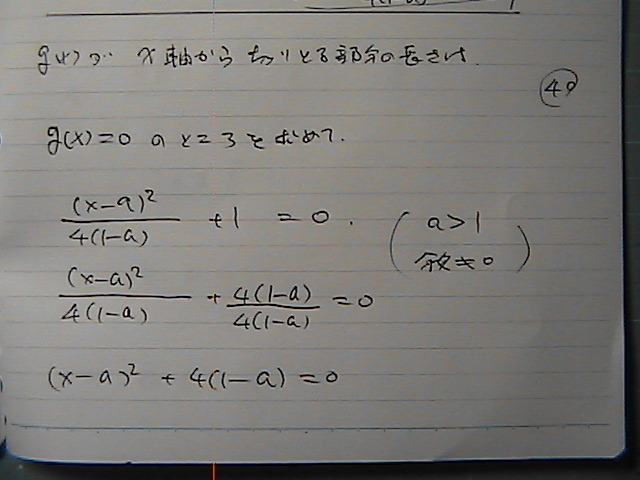 g(x)が x軸から切りとる部分の長さは.
40
g(x)=0 のところを求めて.
(x-a)²/4(1-a) +1 = 0. (a>1
分母≠0)
(x-a)²/4(1-a) + 4(1-a)/4(1-a) = 0
(x-a)² + 4(1-a) = 0